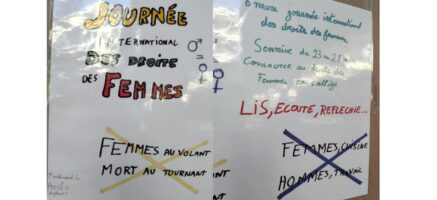 JOURNÉE
INTERNATIONAL
DES DROITS
DES FEMMES
♂ = ♀
FEMMES AU VOLANT
MORT AU TOURNANT
8 mars journée international
des droits des femmes
Semaine du 23 au 27 mars
Consacrée au droits des
Femmes au collège
LIS, ECOUTE, REFLECHIE...
FEMMES, CUISINE
HOMMES, TRAVAIL